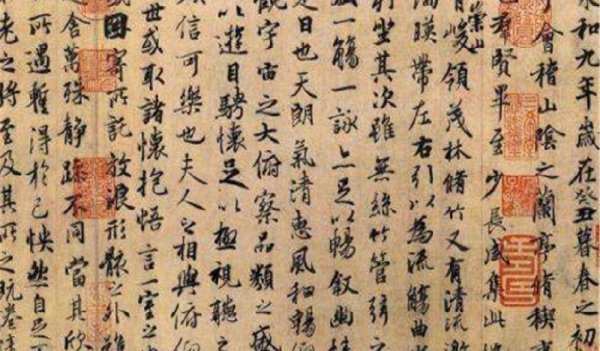 永和九年歲在癸丑暮春之初
會稽山陰之蘭亭脩稧
群賢畢至少長咸集此地
有崇山峻領茂林脩竹又有清流激
湍暎帶左右引以為流觴曲水
列坐其次雖無絲竹管弦之
盛一觴一詠亦足以暢敘幽情
是日也天朗氣清惠風和暢
觀宇宙之大俯察品類之盛
以遊目騁懷足以極視聽之
娛信可樂也夫人之相與俯仰
世或取諸懷抱悟言一室之
或因寄所託放浪形骸之外雖
舍萬殊靜躁不同當其欣
所遇蹔得於己怏然自足
老之將至及其所之既惓